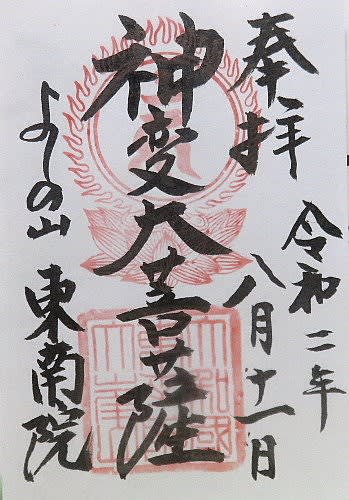 奉拝
令和二年
八月十一日
神変大菩薩
よしの山
東南院